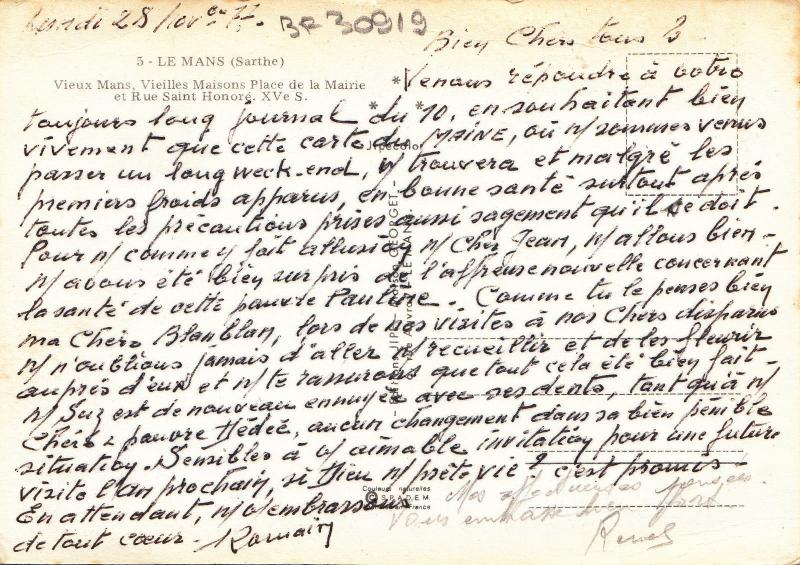 Lundi 28 Nov. 77.
BR30919
Bien Chers tous 3
5 - LE MANS (Sarthe)
Vieux Mans, Vieilles Maisons Place de la Mairie
et Rue Saint Honoré. XVe S.
Venons répondre à votre
toujours long journal du 10, en souhaitant bien
vivement que cette carte du MAINE, où n/ sommes venus
passer un long week-end, v/ trouvera et malgré les
premiers froids apparus, en bonne santé surtout après
toutes les précautions prises aussi sagement qu'il se doit.
Pour n/ comme y fait allusion n/ Cher Jean, n/ allons bien -
n/ avons été bien surpris de l'affreuse nouvelle concernant
la santé de cette pauvre Pauline. Comme tu le penses bien
ma Chère Blanblan, lors de nos visites à nos Chers disparus
n/ n'oublions jamais d'aller n/ recueillir et de les fleurir
auprès d'eux et n/ te rassurons que tout cela été bien fait -
n/ Suz est de nouveau ennuyée avec ses dents, tant qu'à n/
Chère & pauvre Dédée, aucun changement dans sa bien pénible
situation. Sensibles à v/ aimable invitation pour une future
visite l'an prochain, si Dieu n/ prête vie ? c'est promis -
En attendant, n/ v/ embrassons
de tout cœur - Romain
Mes affectueuses pensées.
Vous embrasse bien fort
Couleurs naturelles
© S.P.A.D.E.M.